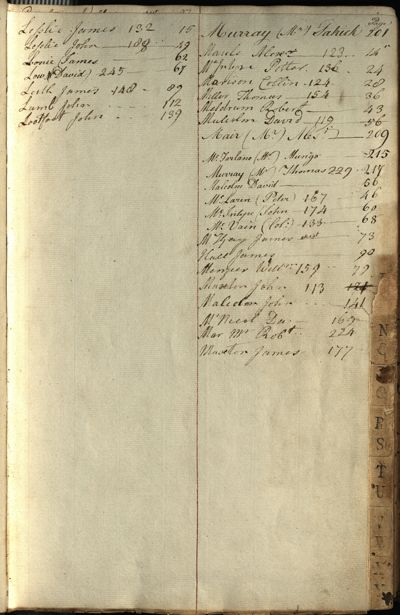 Leslie James 132 15
Leslie John 188 49
Louie James 62
Low David 245 67
Leith James 148 89
Lamb John 112
Loutfoot John 139
Page
Murray (Mr) Patrick 201
Mauer Alexr 123
Potter 136 24
Mathison Collin 124 28
Miller Thomas 154 36
Meldrum Robert 43
Malcolm David 119 56
Mair (Mr) 209
McFarlane (Mr) Mungo 215
Murray (Mr) Thomas 229 217
Malcolm David 66
McLaren (Peter) 167 46
McIntyre John 174 60
McVain (Col:) 133 68
James 73
James 90
Menzies Willm 159 79
Muston John 113 124
Malcolm John 141
McNiell Du 165
Mar Mr Robt 224
Muston James 177
N
O
P
Q
R
S
T
U